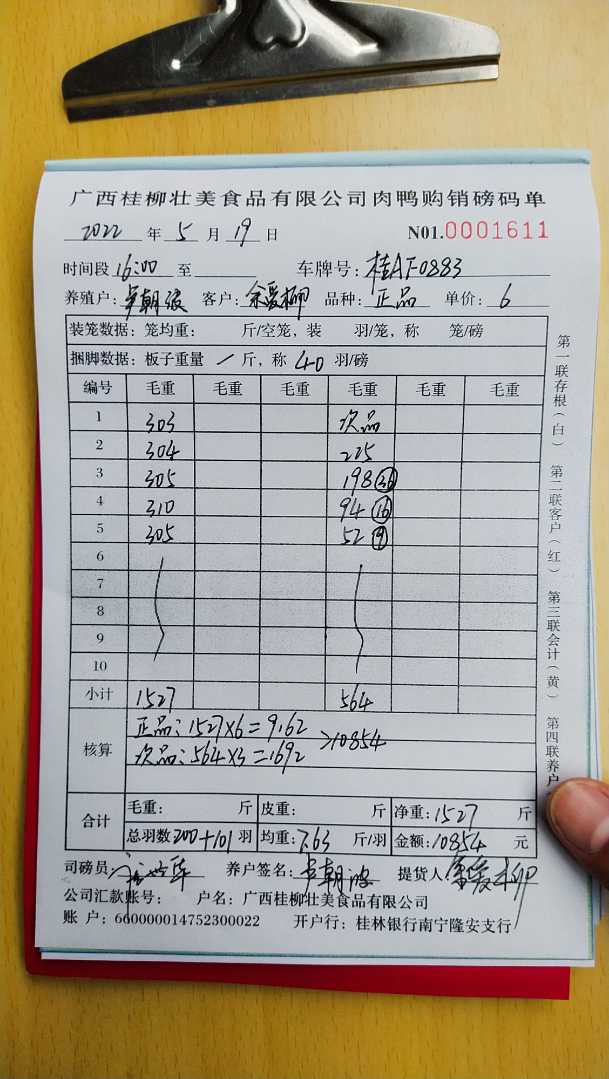 广西桂柳壮美食品有限公司肉鸭购销磅码单
2022 年 5 月 19 日 N01.0001611
时间段 16:00 至 车牌号: 桂AF0883
养殖户: 朝波 客户: 余爱柳 品种: 正品 单价: 6
装笼数据: 笼均重: 斤/空笼, 装 羽/笼, 称 笼/磅
捆脚数据: 板子重量 / 斤, 称 40 羽/磅
编号 毛重 毛重 毛重 毛重 毛重 毛重
1 303 次品
2 304 225
3 305 198 36
4 310 94 16
5 305 52 9
6
7
8
9
10
小计 1527 564
核算
正品: 1527×6=9162
次品: 564×3=1692
>10854
合计
毛重: 斤 皮重: 斤 净重: 1527 斤
总羽数 200+101 羽 均重: 7.63 斤/羽 金额: 10854 元
司磅员: 养户签名: 朝波 提货人 余爱柳
公司汇款账号: 户名: 广西桂柳壮美食品有限公司
账 户: 660000014752300022 开户行: 桂林银行南宁隆安支行
第一联存根(白) 第二联客户(红) 第三联会计(黄) 第四联养户